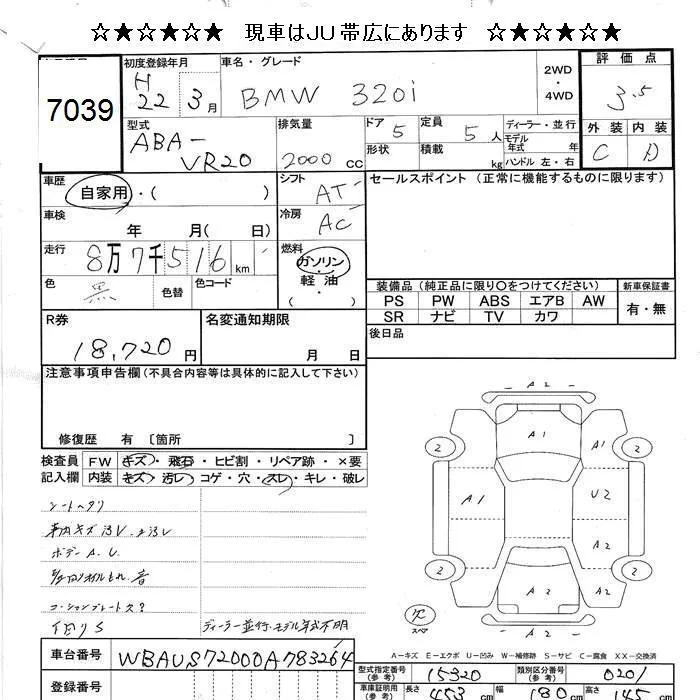 ☆★☆★☆★ 現車はJU帯広にあります ☆★☆★☆★
7039
初度登録年月
H22 3月
車名・グレード
BMW 320i
2WD
・
4WD
評価点
3.5
外装 内装
C D
型式
ABA-
VR20
排気量
2000 cc
ドア 5
定員 5 人
形状
積載 kg
ディーラー・並行
モデル年式 年
ハンドル 左・右
車歴
自家用・( )
シフト
AT
セールスポイント (正常に機能するものに限ります)
車検
年 月( 日)
冷房
AC
走行
8万7千516 km
燃料
ガソリン
・
軽油
( )
色
黒
色替
色コード
装備品 (純正品に限り〇をつけてください)
PS PW ABS エアB AW
SR ナビ TV カワ
新車保証書
有・無
R券
18,720円
名変通知期限
月 日
後日品
注意事項申告欄(不具合内容等は具体的に記入して下さい)
修復歴 有 〔箇所 〕
検査員 FW キズ・飛石・ヒビ割・リペア跡・×要
記入欄 内装 キズ・汚レ・コゲ・穴・スレ・キレ・破レ
シートヘタリ
ボデーA.U.
ディーラー並行、モデル年式不明
A2
2 A1 A1 2
A1 U2
A2
2 A2 A2 2
欠
スペア
A2
A-キズ E-エクボ U-凹み W-補修跡 S-サビ C-腐食 XX-交換済
車台番号
WBAUS72000A783264
登録番号
型式指定番号
(参考)
15320
類別区分番号
(参考)
0201
車庫証明用
(参考)
長さ 453 cm 幅 180 cm 高さ 145 cm